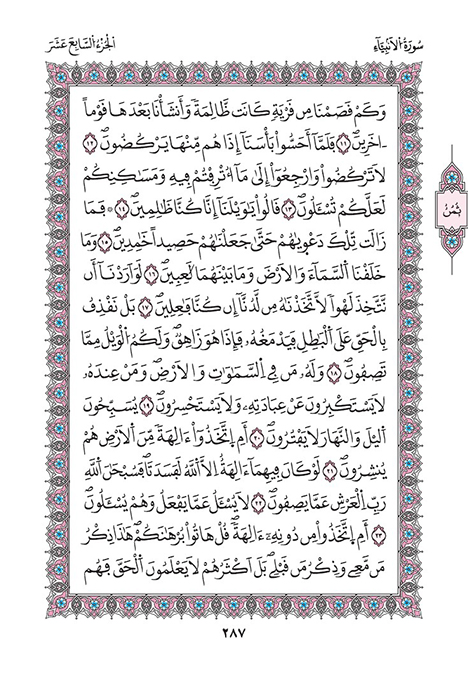 سُورَةُ الْأَنْبِيَاءِ
الْجُزْءُ السَّابِعَ عَشَرَ
وَكَمْ قَصَمْنَا مِن قَرْيَةٍ كَانَت ظَّالِمَةً وَأَنشَأْنَا بَعْدَهَا قَوْماً
ـاخَرِينَ ١١ فَلَمَّآ أَحَسُّواْ بَأْسَنَآ إِذَا هُم مِّنْهَا يَرْكُضُونَ ١٢
لَا تَرْكُضُواْ وَارْجِعُوٓاْ إِلَىٰ مَآ أُتْرِفْتُمْ فِيهِ وَمَسَٰكِنِكُمْ
لَعَلَّكُمْ تُسْـَٔلُونَ ١٣ قَالُواْ يَٰوَيْلَنَآ إِنَّا كُنَّا ظَٰلِمِينَ ١٤ فَمَا
زَالَت تِّلْكَ دَعْوَىٰهُمْ حَتَّىٰ جَعَلْنَٰهُمْ حَصِيداً خَٰمِدِينَ ١٥ وَمَا
خَلَقْنَا السَّمَآءَ وَالْأَرْضَ وَمَا بَيْنَهُمَا لَٰعِبِينَ ١٦ لَوَ اَرَدْنَآ أَن
نَّتَّخِذَ لَهْواً لَّاتَّخَذْنَٰهُ مِن لَّدُنَّآ إِن كُنَّا فَٰعِلِينَ ١٧ بَلْ نَقْذِفُ
بِالْحَقِّ عَلَى الْبَٰطِلِ فَيَدْمَغُهُۥ فَإِذَا هُوَ زَاهِقٌ وَلَكُمُ الْوَيْلُ مِمَّا
تَصِفُونَ ١٨ وَلَهُۥ مَن فِي السَّمَٰوَٰتِ وَالْأَرْضِ وَمَنْ عِندَهُۥ
لَا يَسْتَكْبِرُونَ عَنْ عِبَادَتِهِۦ وَلَا يَسْتَحْسِرُونَ ١٩ يُسَبِّحُونَ
اَلَّيْلَ وَالنَّهَارَ لَا يَفْتُرُونَ ٢٠ أَمِ اِتَّخَذُوٓاْ ءَالِهَةً مِّنَ الْأَرْضِ هُمْ
يُنشِرُونَ ٢١ لَوْ كَانَ فِيهِمَآ ءَالِهَةٌ اِلَّا اَللَّهُ لَفَسَدَتَا فَسُبْحَٰنَ اللَّهِ
رَبِّ الْعَرْشِ عَمَّا يَصِفُونَ ٢٢ لَا يُسْـَٔلُ عَمَّا يَفْعَلُ وَهُمْ يُسْـَٔلُونَ
٢٣ أَمِ اِتَّخَذُواْ مِن دُونِهِۦٓ ءَالِهَةً قُلْ هَاتُواْ بُرْهَٰنَكُمْ هَٰذَا ذِكْرُ
مَن مَّعِي وَذِكْرُ مَن قَبْلِي بَلَ اَكْثَرُهُمْ لَا يَعْلَمُونَ الْحَقَّ فَهُم
ثُمُنْ
٢٨٧